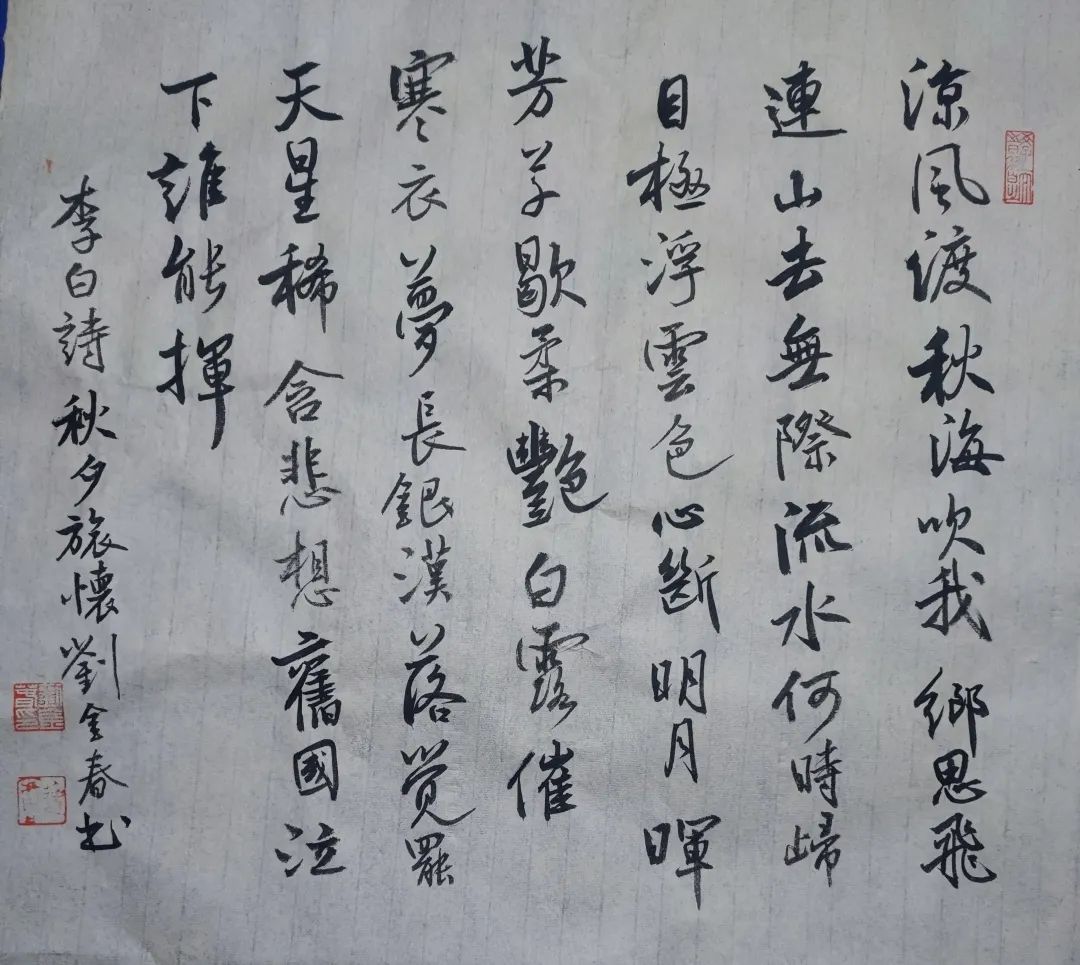 涼風渡秋海吹我鄉思飛
連山去無際流水何時歸
目極浮雲色心斷明月暉
芳草歇柔艷白露催
寒衣夢長銀漢落覺罷
天星稀含悲想舊國泣
下誰能揮
李白詩秋夕旅懷劉金春书